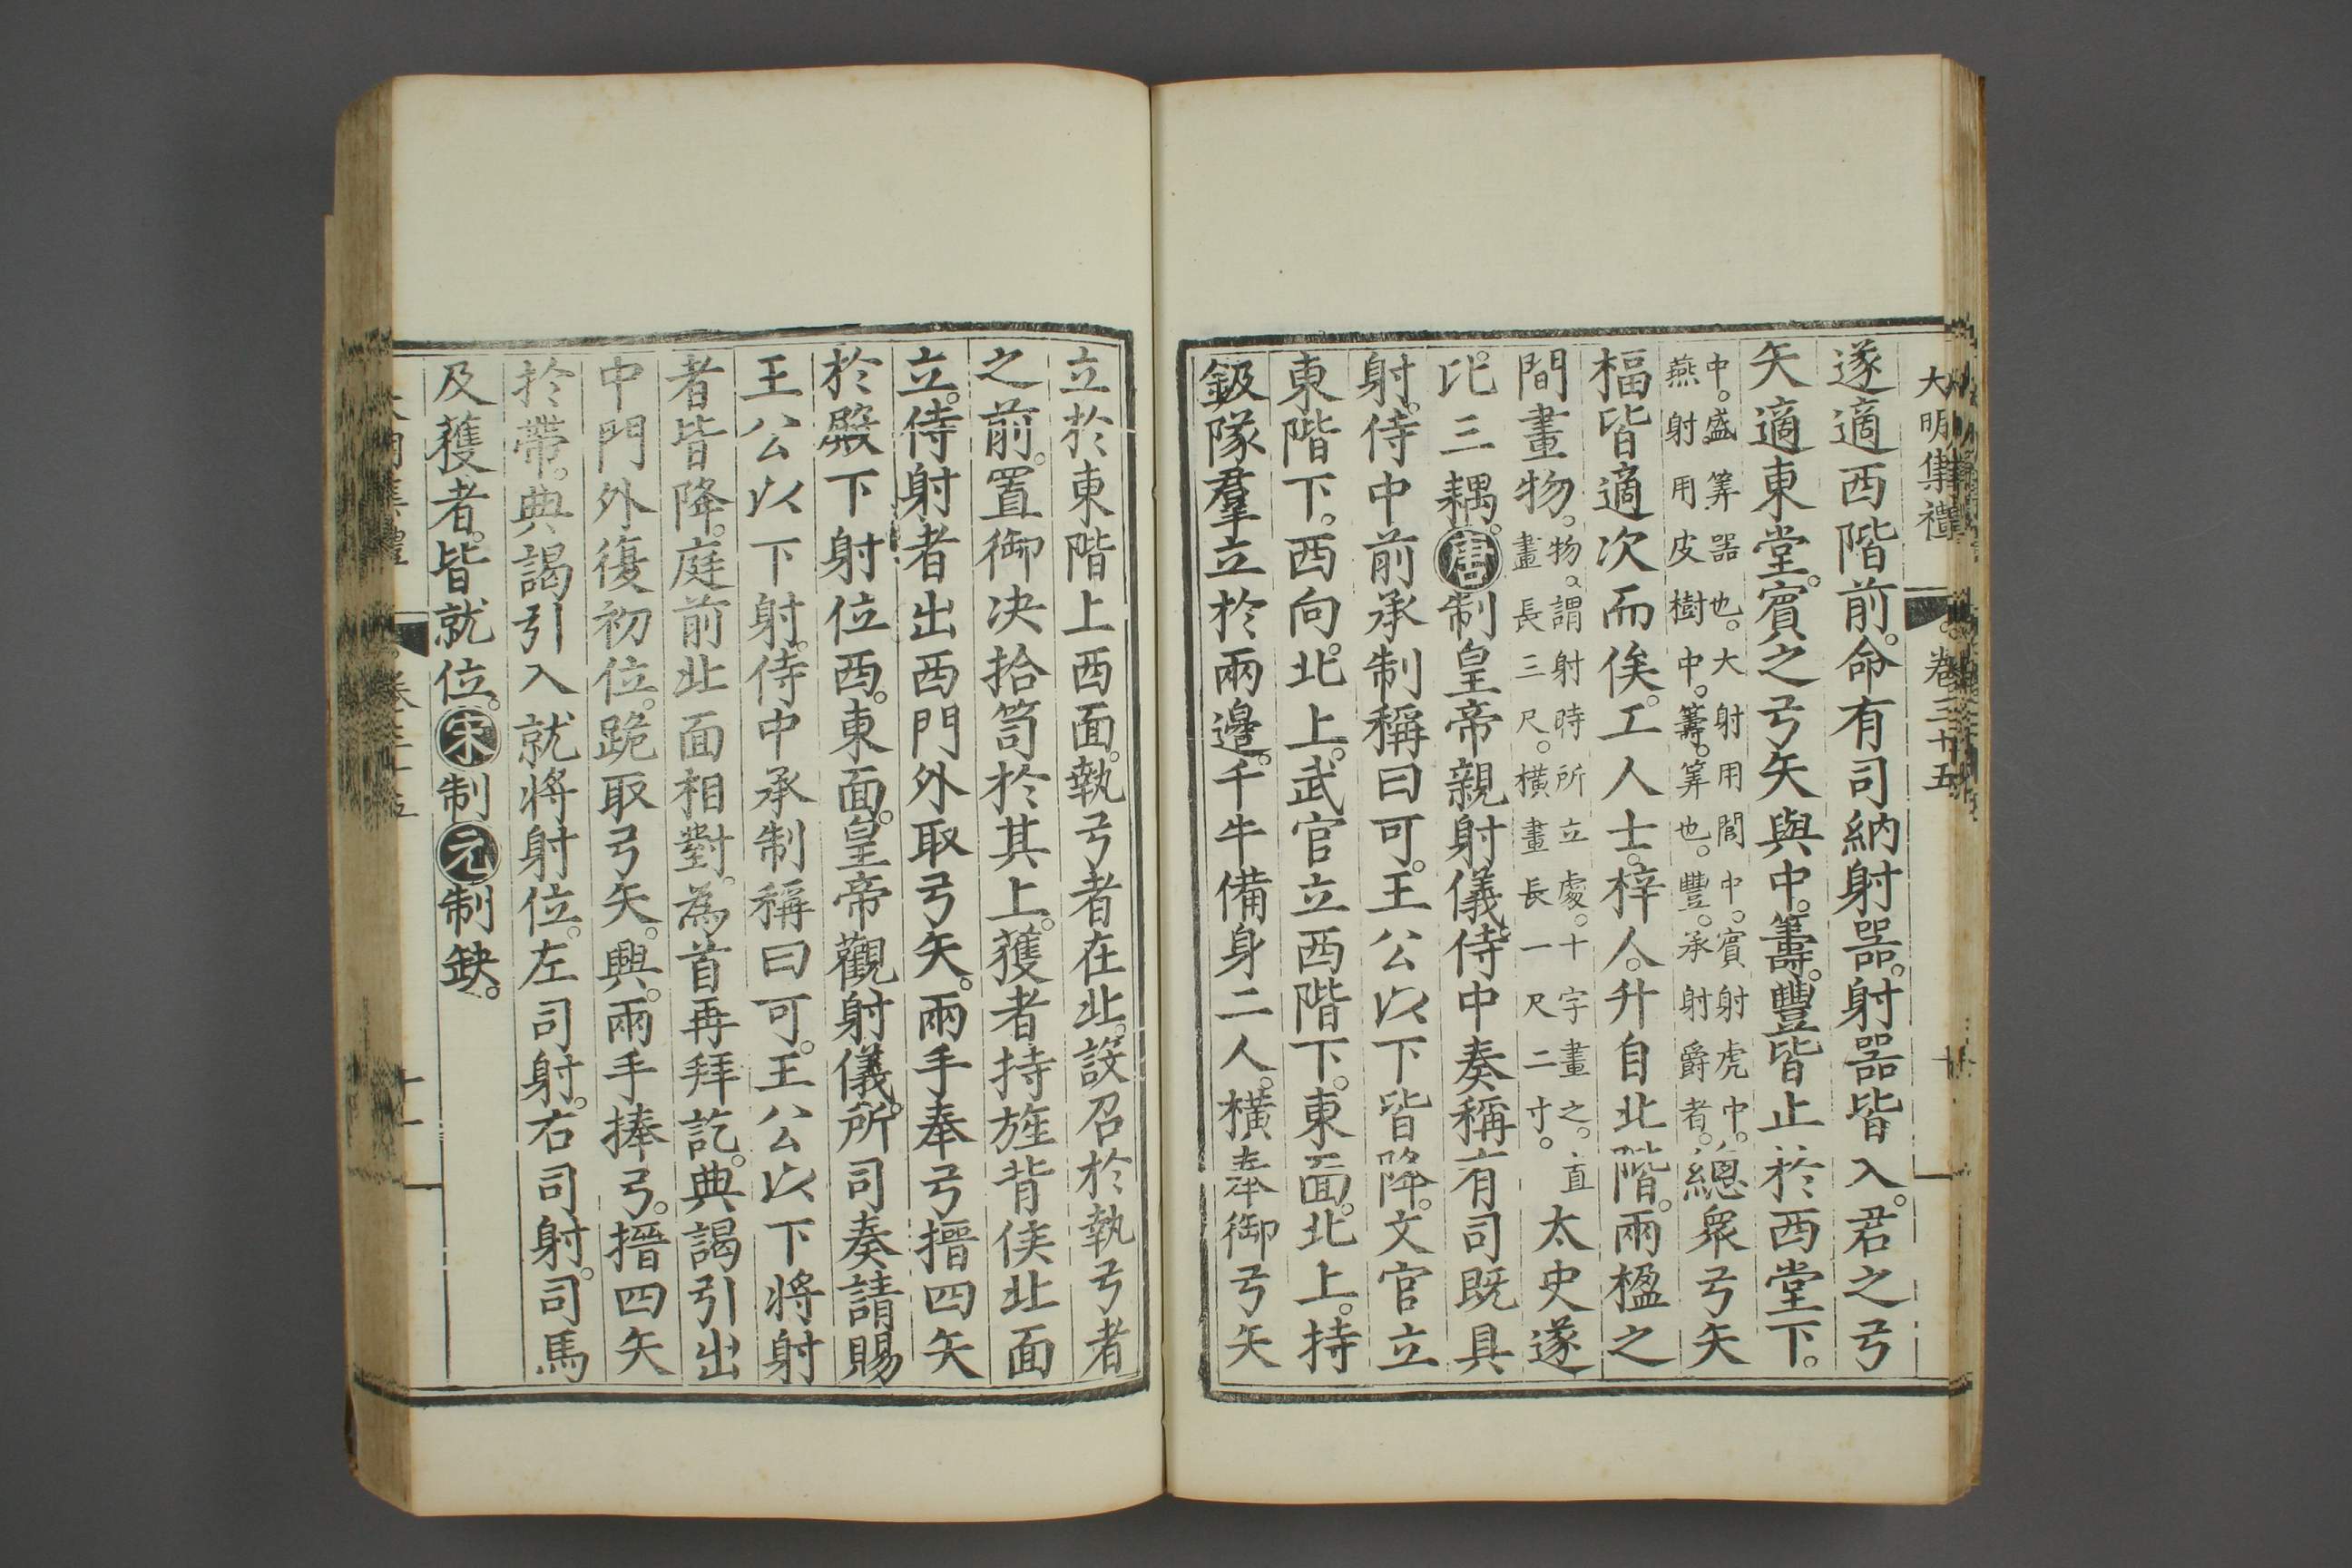 大明集禮 卷三十五
遂適西階前。命有司納射器。射器皆入。君之弓
矢適東堂。賓之弓矢與中。籌。豐皆止於西堂下。
中。盛筭器也。大射用閭中。賓射虎中。
燕射用皮樹中。籌。筭也。豐。承射爵者。
總眾弓矢
楅皆適次而俟。工人士。梓人。升自北階。兩楹之
間畫物。
物。謂射時所立處。十字畫之。直
畫長三尺。橫畫長一尺二寸。
太史遂
比三耦。唐制皇帝親射儀。侍中奏稱有司既具
射。侍中前承制稱曰可。王公以下皆降。文官立
東階下。西向。北上。武官立西階下。東面。北上。持
鈒隊羣立於兩邊。千牛備身二人。橫奉御弓矢
立於東階上西面。執弓者在北。設召於執弓者
之前。置御決拾笥於其上。獲者持旌背侯北面
立。侍射者出西門外取弓矢。兩手奉弓搢四矢
於殿下射位西。東面。皇帝觀射儀。所司奏請賜
王公以下射。侍中承制稱曰可。王公以下將射
者皆降。庭前北面相對。為首再拜訖。典謁引出
中門外復初位。跪取弓矢。興。兩手捧弓。搢四矢
於帶。典謁引入就將射位。左司射。右司射。司馬
及獲者。皆就位。宋制元制缺。
卷三十五
十一